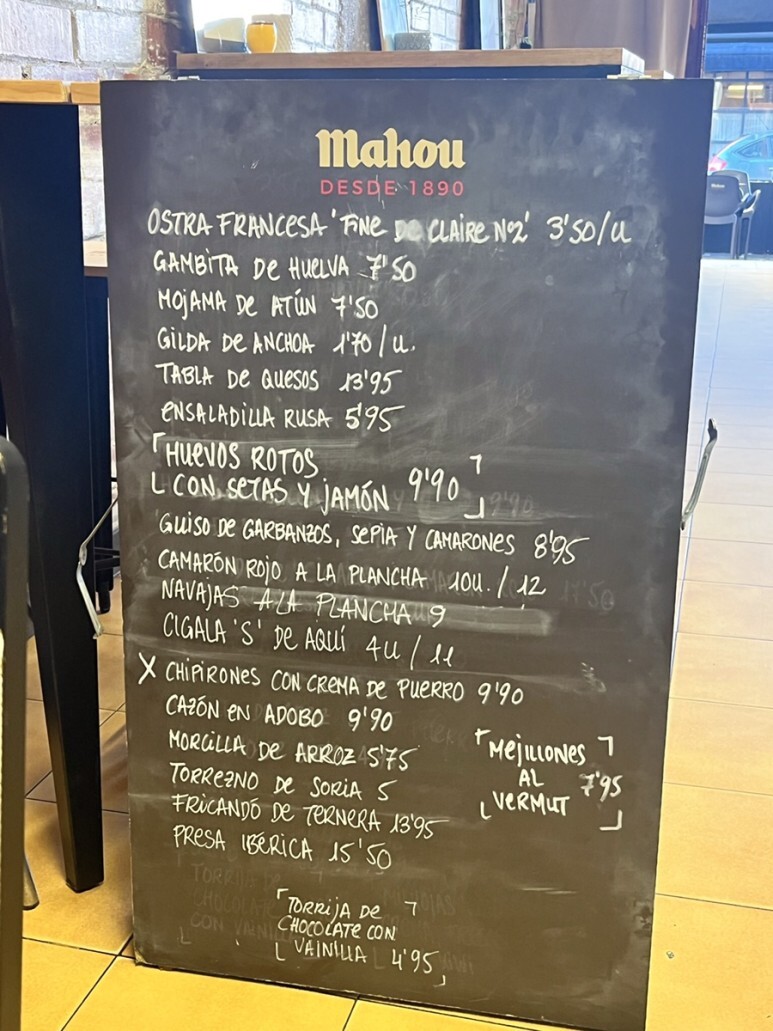 Mahou
DESDE 1890
OSTRA FRANCESA 'FINE DE CLAIRE Nº2' 3'50/U
GAMBITA DE HUELVA 7'50
MOJAMA DE ATÚN 7'50
GILDA DE ANCHOA 1'70/U.
TABLA DE QUESOS 13'95
ENSALADILLA RUSA 5'95
HUEVOS ROTOS
CON SETAS Y JAMÓN 9'90
GUISO DE GARBANZOS, SEPIA Y CAMARONES 8'95
CAMARÓN ROJO A LA PLANCHA 10U./12
NAVAJAS A LA PLANCHA 9
CIGALA 'S' DE AQUÍ 4U/11
X CHIPIRONES CON CREMA DE PUERRO 9'90
CAZÓN EN ADOBO 9'90
MORCILLA DE ARROZ 5'75
TORREZNO DE SORIA 5
FRICANDÓ DE TERNERA 13'95
PRESA IBÉRICA 15'50
MEJILLONES
AL 7'95
VERMUT
TORRIJA DE
CHOCOLATE CON
VAINILLA 4'95